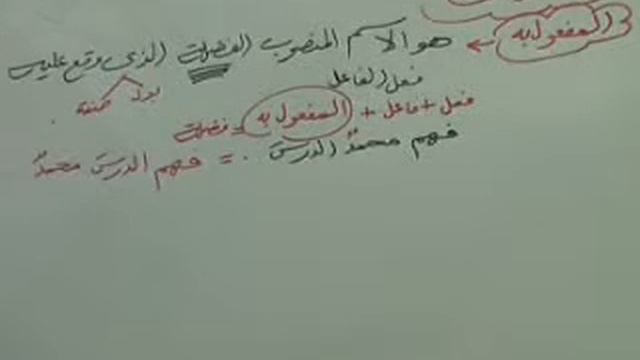 المفعول به ← هو الاسم المنصوب الفضلة الذي وقع عليه
فعل الفاعل
فعل + فاعل + المفعول به = فضلة
فهم محمدٌ الدرسَ . = فهم الدرسَ محمدٌ